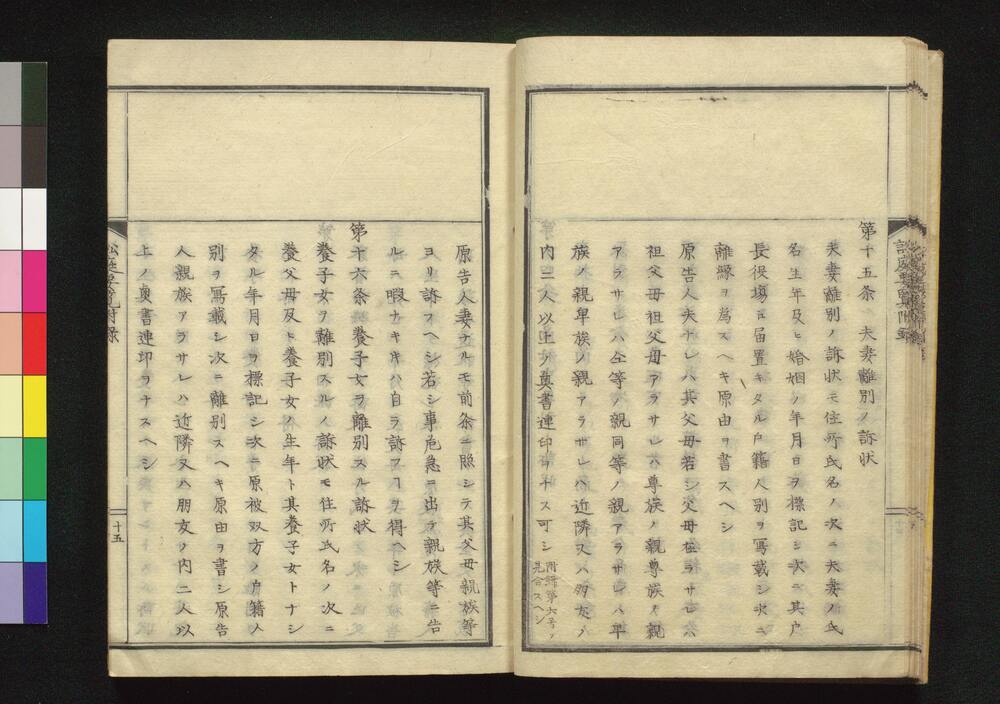 第十五条 夫妻離別ノ訴状
夫妻離別ノ訴状モ住所氏名ノ次ニ夫妻ノ氏
名生年及ヒ婚姻ノ年月日ヲ標記シ次ニ其戸
長役場ニ届置キタル戸籍人別ヲ写載シ次ニ
離縁ヲ為スヘキ原由ヲ書スヘシ
原告人夫ナレハ其父母若シ父母在ラサレハ
祖父母祖父母アラサレハ尊族ノ親尊族ノ親
アラサレハ仝等ノ親同等ノ親アラサレハ卑
族ノ親卑族ノ親アラサレハ近隣又ハ朋友ノ
内二人以上ノ奥書連印ヲナス可シ
附録第六号ノ
見合スヘシ
原告人妻ナルモ前条ニ照シテ其父母親族等
ヨリ訴フヘシ若シ事危急ニ出テ親族等ニ告
ルニ暇ナキキハ自ラ訴フヿヲ得ヘシ
第十六条 養子女ヲ離別スル訴状
養子女ヲ離別スルノ訴状モ住所氏名ノ次ニ
養父母及ヒ養子女ノ生年ト其養子女トナシ
タル年月日ヲ標記シ次ニ原被双方ノ戸籍人
別ヲ写載シ次ニ離別スヘキ原由ヲ書シ原告
人親族アラサレハ近隣又ハ朋友ノ内二人以
上ノ奥書連印ヲナスヘシ
十五